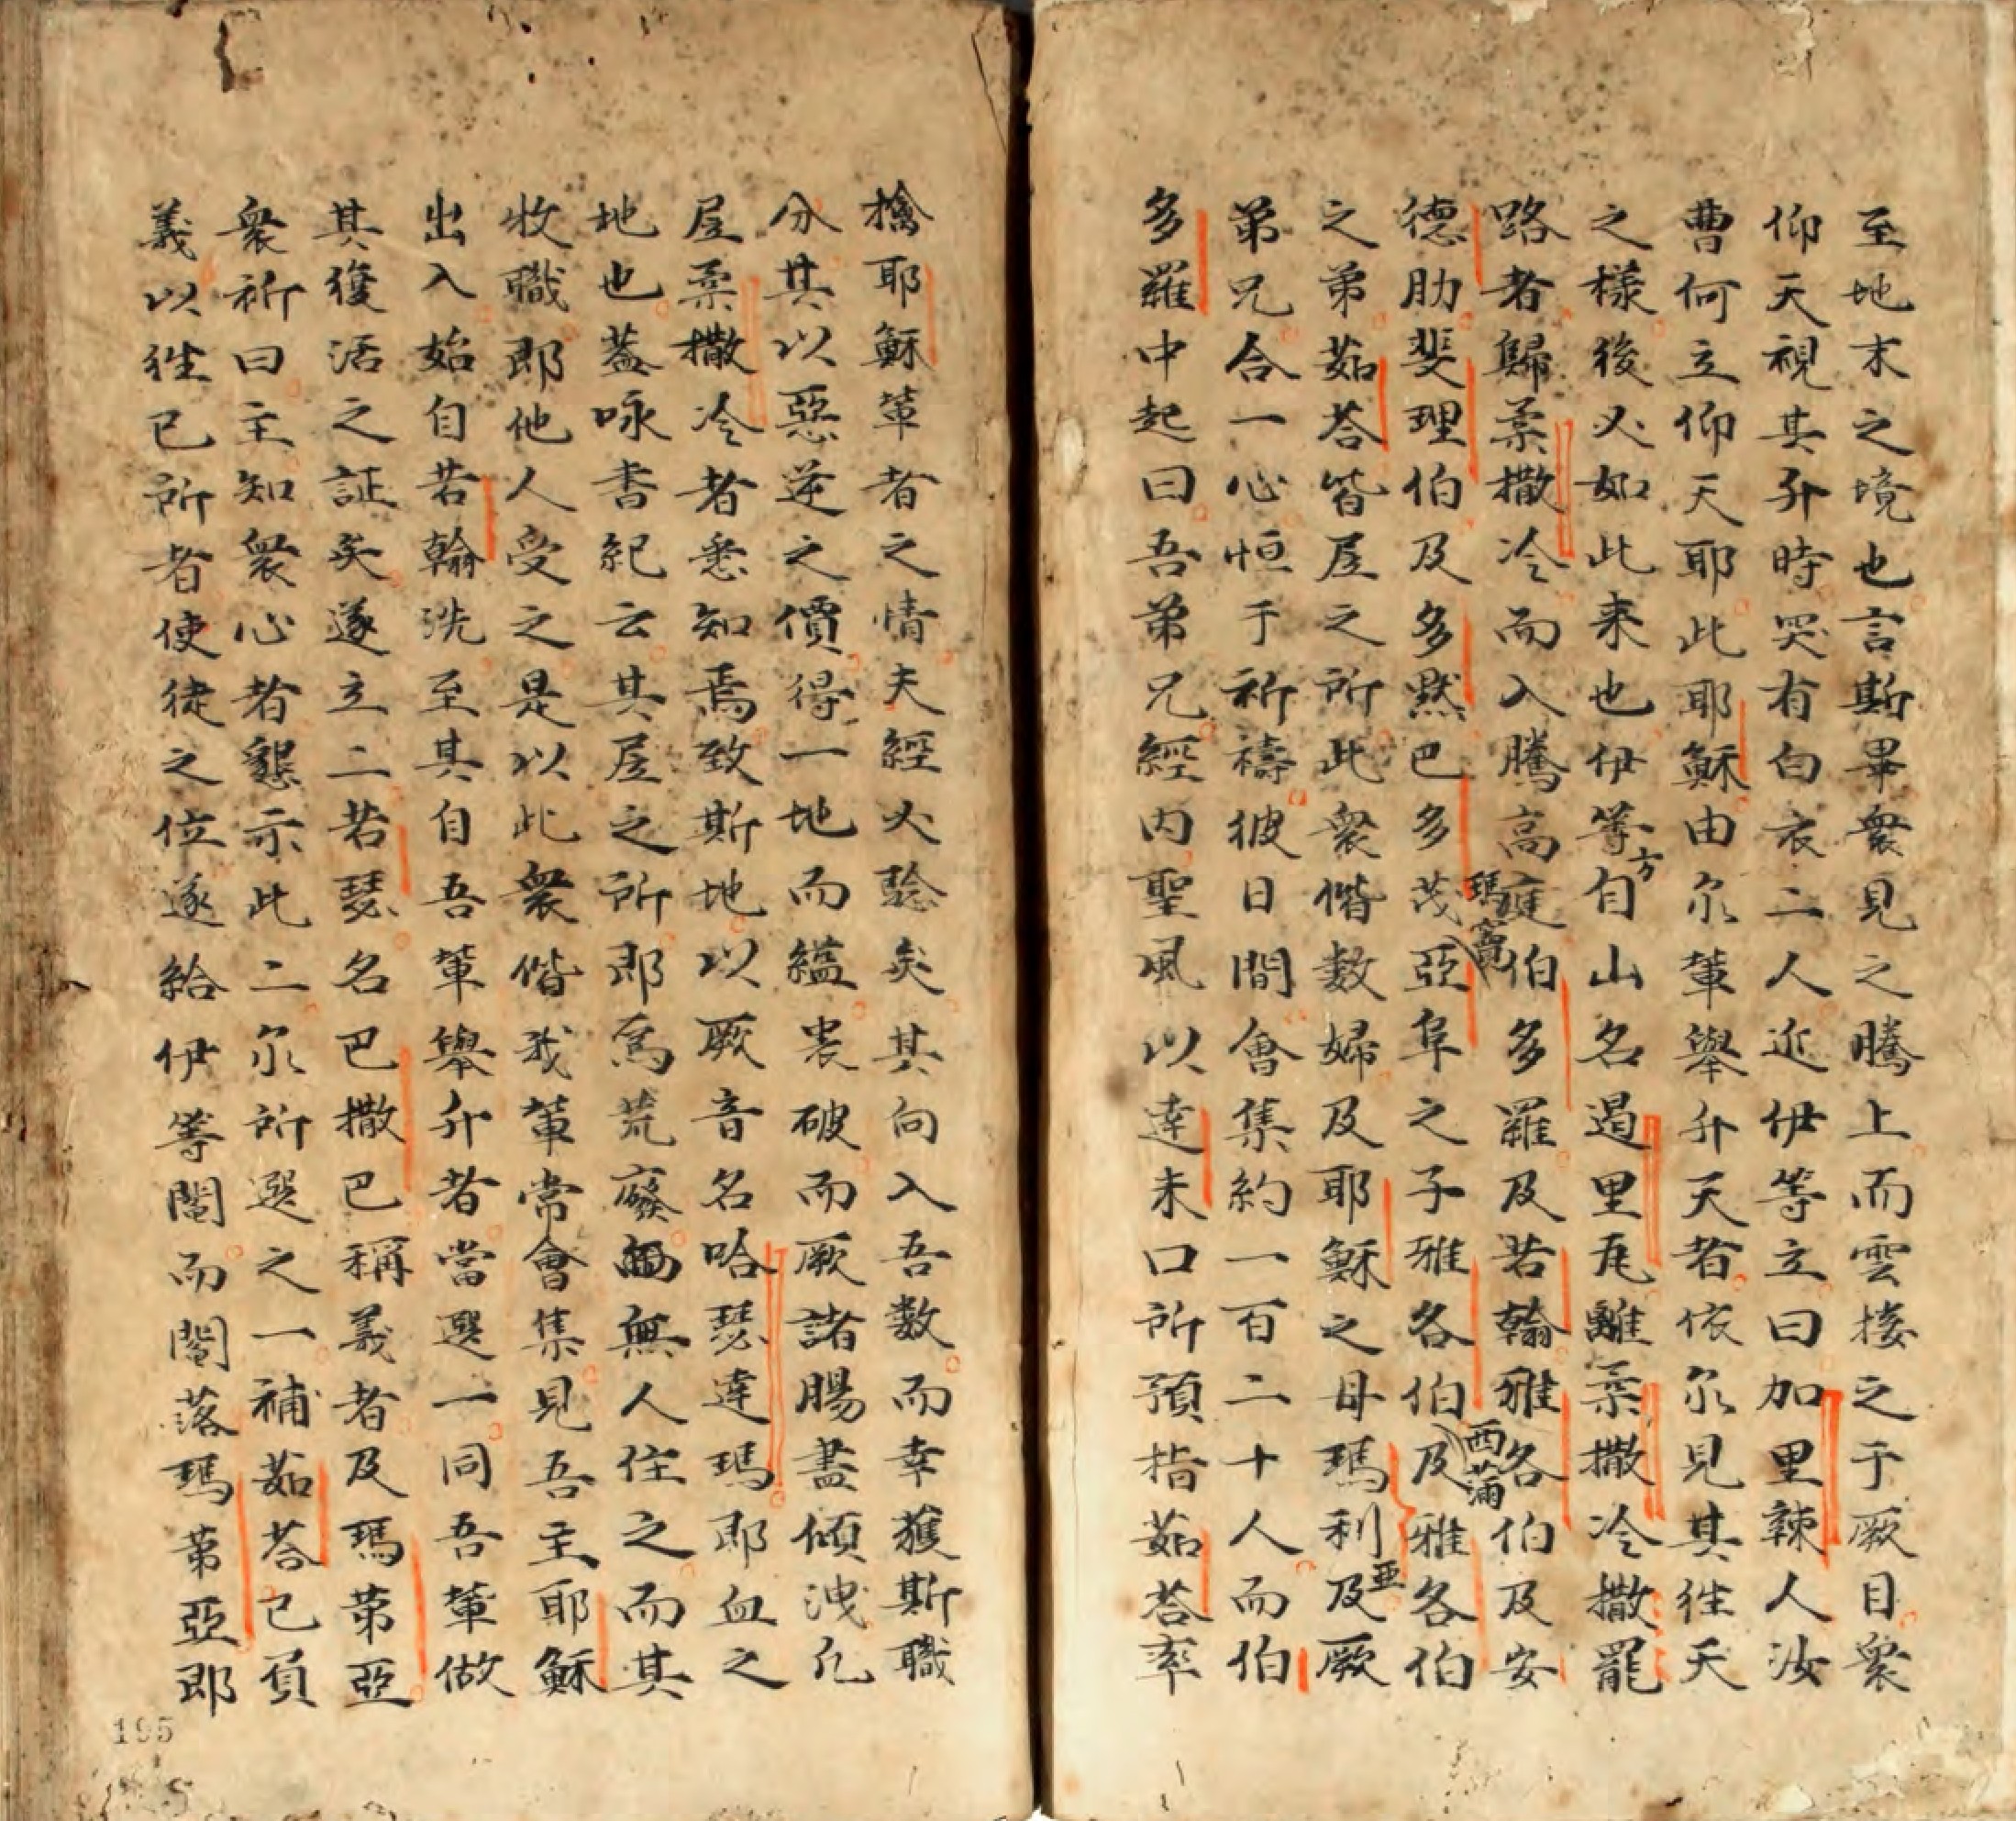 至地末之境也言斯畢衆見之騰上而雲接之于厥目衆
仰天視其升時哭有白衣二人近伊等立曰加里辣人汝
曹何立仰天耶此耶穌由尔輩舉升天者依尔見其徃天
之樣後必如此来也伊等方自山名遏里庑離柔撒冷撒罷
路者歸柔撒冷而入騰高寔伯多羅及若翰雅各伯及安
瑪竇
德肋斐理伯及多黙巴多茂亞阜之子雅各伯及雅各伯
西蒲
之弟茹荅皆居之所此衆偕數婦及耶穌之母瑪利亞及厥
弟兄合一心恒于祈禱彼日間會集約一百二十人而伯
多羅中起曰吾弟兄經内聖風以達未口所預指茹荅率
擒耶穌輩者之情夫經必騐矣其向入吾數而幸獲斯職
分其以惡逆之價得一地而縊喪破而厥諸腸盡傾洩凢
居柔撒冷者悉知焉致斯地以厥音名哈瑟達瑪即血之
地也蓋咏書紀云其居之所即爲荒廢無人住之而其
牧職即他人受之是以此衆偕我輩常會集見吾主耶穌
出入始自若翰洗至其自吾輩舉升者當選一同吾輩做
其復活之証矣遂立二若瑟名巴撒巴稱義者及瑪第亞
衆祈曰主知衆心者懇示此二尔所選之一補茹荅已負
義以徃已所者使徒之位遂給伊等鬮而鬮落瑪第亞即
195